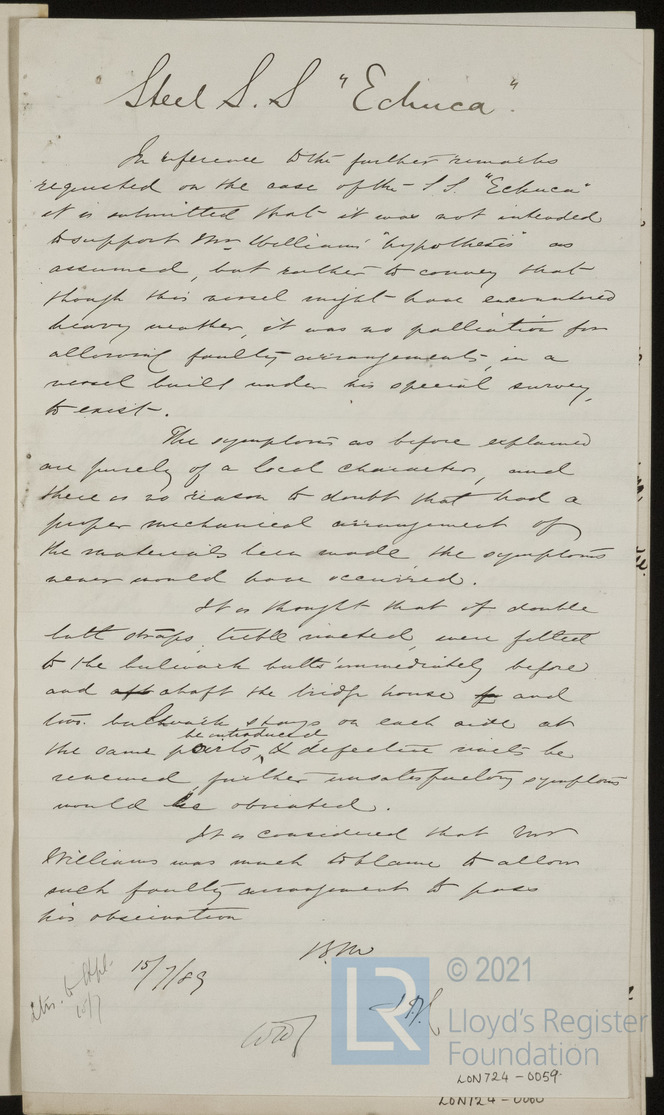 Steel S.S "Echuca".
In reference to the further remarks
requested on the case of the S.S. "Echuca"
it is submitted that it was not intended
to support Mr Williams' "hypothesis" as
assumed, but rather to convey that
though this vessel might have encountered
heavy weather, it was no palliation for
allowing faulty arrangements, in a
vessel built under his special survey,
to exist.
The symptoms as before explained
are purely of a local character, and
there is no reason to doubt that had a
proper mechanical arrangement of
the materials been made the symptoms
never would have occurred.
It is thought that if double
butt straps, treble riveted, were fitted
to the bulwark butts immediately before
and aft abaft the bridge house and
two bulwark stays on each side at
be introduced
the same parts, & defective rivets be
renewed further unsatisfactory symptoms
would be obviated.
It is considered that Mr
Williams was much to blame to allow
such faulty arrangement to pass
his observation
15/7/89
15/7
© 2021
LR
Lloyd's Register
Foundation
LON724-0059
LON724-0060